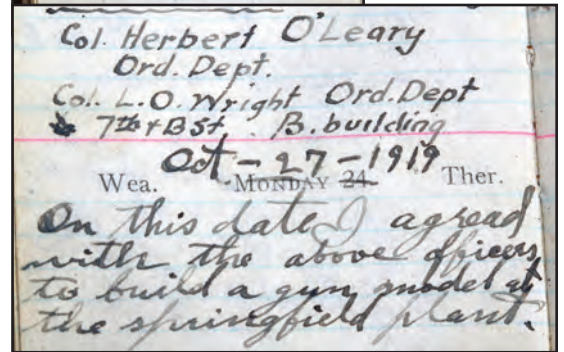 Col. Herbert O'Leary
Ord. Dept.
Col. L.O. Wright Ord. Dept
7th & B St. B. building
Oct - 27 - 1919
Wea. MONDAY 24 Ther.
On this date I agread
with the above officers
to build a gun model at
the springfield plant.